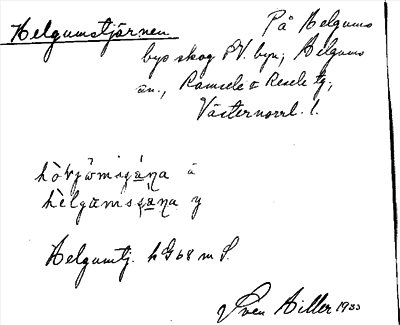 Helgumstjärnen
På Helgums
bys skog SV. byn; Helgums
sn., Ramsele o Resele tg,
Västernorrl. l.
ä
y
Helgumtj. hG 68 m S.
Sven Hiller 1933